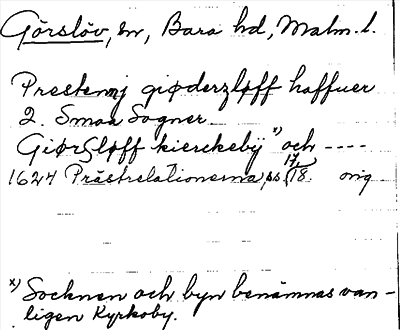 Görslöv, sn, Bara hd, Malm. l.
Presten j giøderzløff haffuer
2. Smaa Sogner
Giørsløff kierckebÿ x) och ----
1624 Prästrelationerna, ss. 17/18. orig
x) Socknen och byn benämnas van-
ligen Kyrkoby.